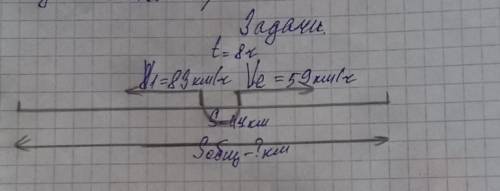 Задача.
t = 8ч
V1=83км/ч V2=59км/ч
S=44км
Sобщ-?км